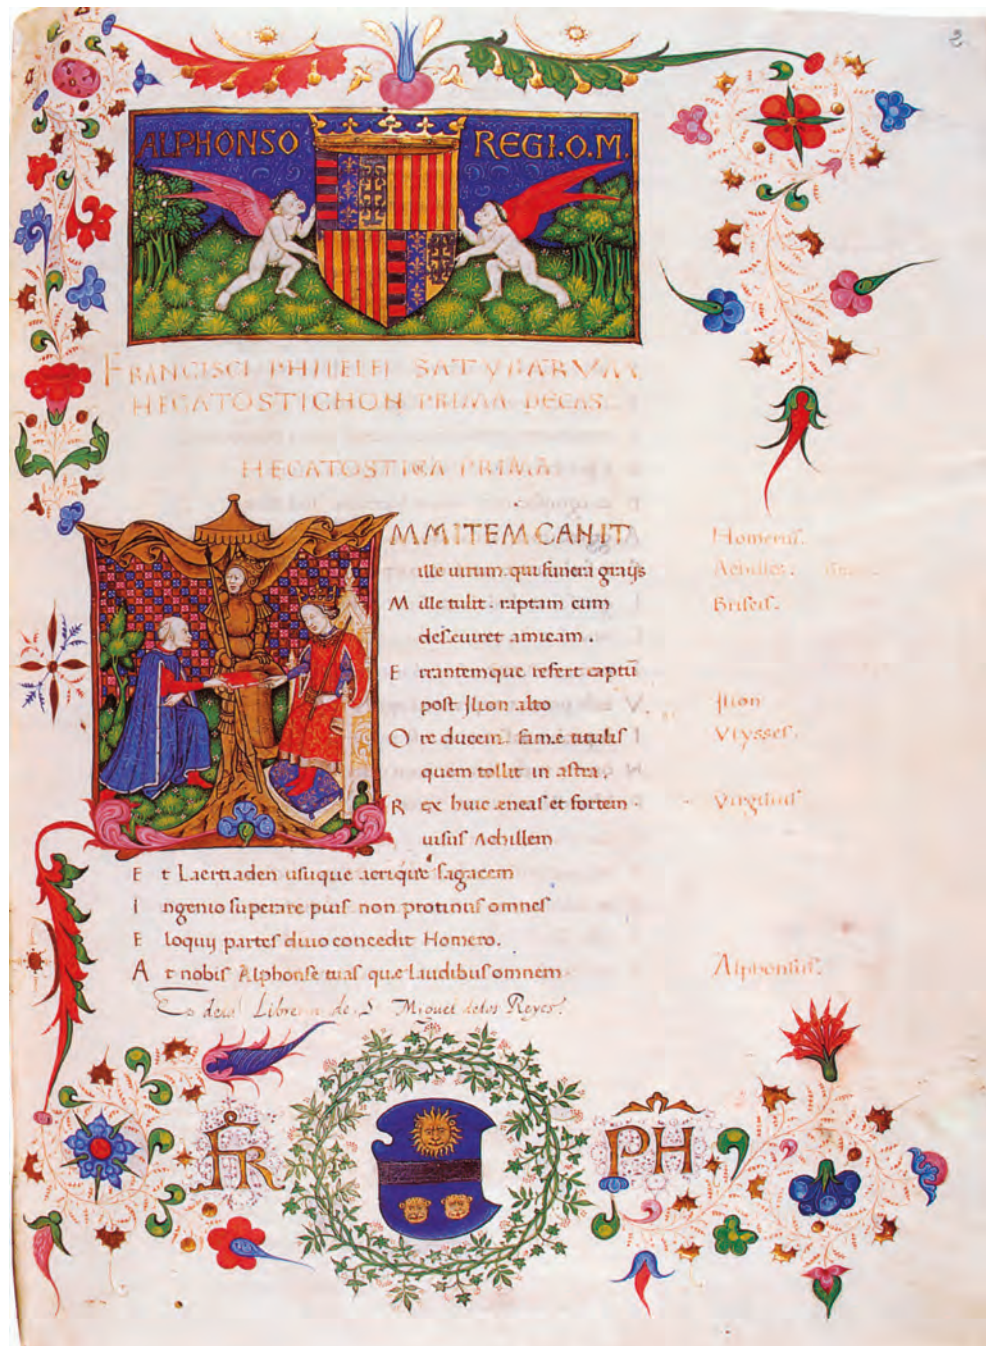 2
ALPHONSO REGI.O.M.
FRANCISCI PHILELFI SATYRARVM
HECATOSTICHON PRIMA DECAS.
HECATOSTICA PRIMA
IMMITEM CANIT Homerus.
ille uirum qui funera graijs Achilles.
M ille tulit. raptam cum Briseis.
deseuiret amicam.
E rrantemque refert captū
post Jlion alto Jlion
O re ducem. famæ titulis Vlysses.
quem tollit in astra.
R ex huic æneas et fortem Virgilius
uisus Achillem
E t Laertiaden usuque acrique sagacem
I ngenio superare pius non protinus omnes
E loquij partes diuo concedit Homero.
A t nobis Alphonse tuas quæ laudibus omnem Alphonsus.
Es de la Libreria de S. Miguel de los Reyes.
FR PH